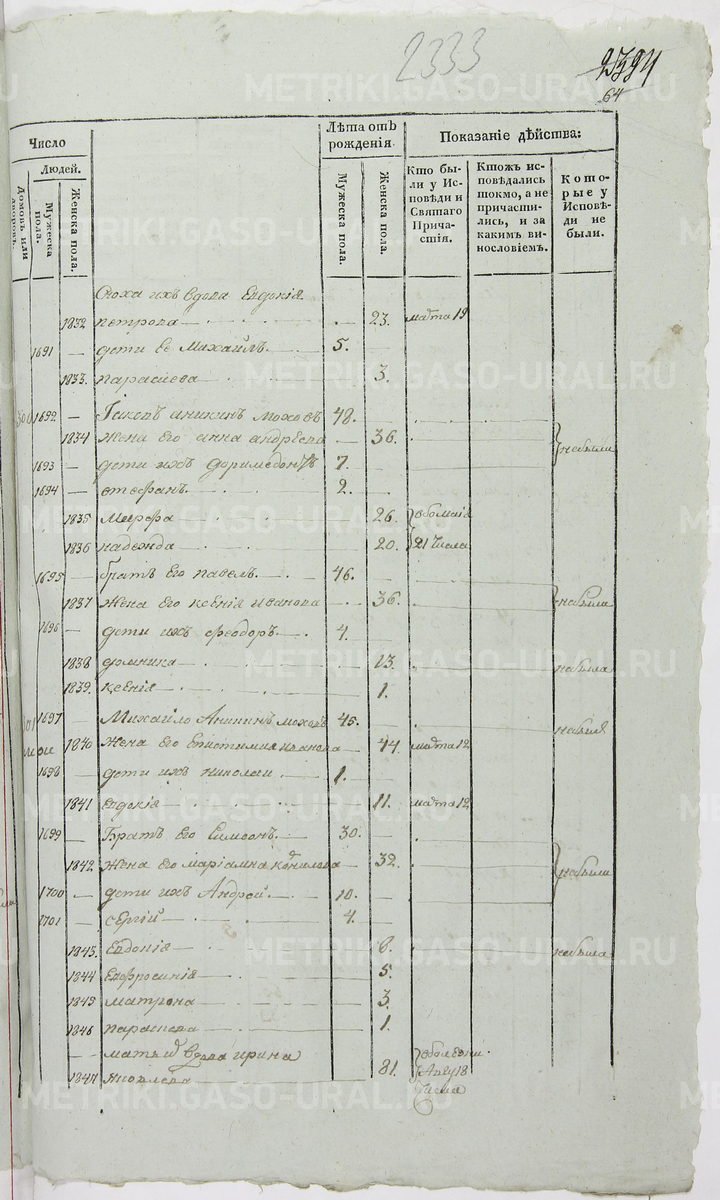 2333
2394
64
METRIKI.GASO-URAL.RU
Число
Людей.
Домовъ или дворовъ.
Мужеска пола.
Женска пола.
Лѣта отъ рожденія.
Мужеска пола.
Женска пола.
Показаніе дѣйства:
Кто были у Исповѣди и Святаго Причастія.
Ктожъ исповѣдались токмо, а не причастились, и за какимъ винословіемъ.
Которые у Исповѣди не были.
Сноха ихъ вдова Евдокія
1832 петрова 23. марта 19
1691 дети Ее Михаилъ 5.
1833. парасиева 3.
300 1692 Іаковъ аникинъ моховъ 48.
1834 жена Его анна андреева 36. небыли
1693 дети ихъ доримедонтъ 7
1694 стефанъ 2.
1835 Марфа 26.
1836 надежда 20. 21 числа
1695 братъ Его павелъ 46.
1837 жена Его ксения иванова 36. небыла
1696 дети ихъ феодоръ 4.
1838 домника 13. небыла
1839. ксенія 1.
301 1697 Михайло Аникинъ моховъ 45. небылъ
1840 жена Его Епистимия иванова 44. марта 12
1698 дети ихъ николаи 1.
1841 евдокія 11. марта 12
1699 Братъ Его Симеонъ 30.
1842 жена Его маріамна 32. небыли
1700 дети ихъ Андрей 10.
1701 сергій 4.
1843. Евдокія 8. небыла
1844 Евфросинія 5.
1845 матрона 3.
1846 параскева 1.
мать вдова ирина
1847 яковлева 81. 18
числа